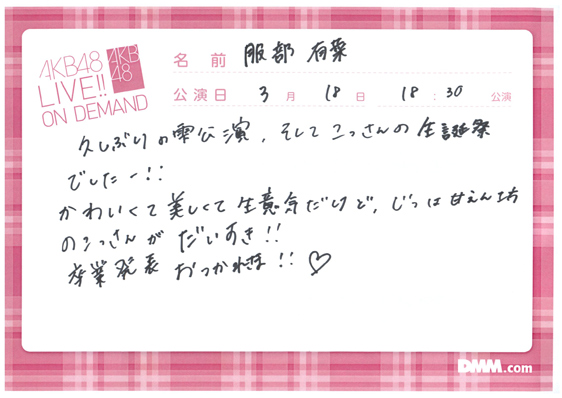 AKB48
LIVE!!
ON DEMAND
AKB
48
名 前 服部 有菜
公演日 3 月 18 日 18 : 30 公演
久しぶりの雫公演、そしてこっさんの生誕祭
でしたー!!
かわいくて美しくて生意気だけど、じつは甘えん坊
のこっさんが だいすき!!
卒業発表 おつかれさま!! ♡
DMM.com